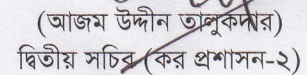 (আজম উদ্দীন তালুকদার)
দ্বিতীয় সচিব (কর প্রশাসন-২)